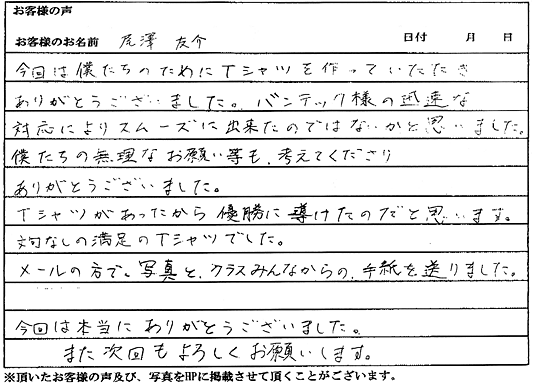 お客様の声
お客様のお名前 尾澤 友介 日付 月 日
今回は僕たちのためにTシャツを作っていただき
ありがとうございました。バンテック様の迅速な
対応によりスムーズに出来たのではないかと思いました。
僕たちの無理なお願い等も、考えてくださり
ありがとうございました。
Tシャツがあったから優勝に導けたのだと思います。
文句なしの満足のTシャツでした。
メールの方で、写真と、クラスみんなからの、手紙を送りました。
今回は本当にありがとうございました。
また次回もよろしくお願いします。
※頂いたお客様の声及び、写真をHPに掲載させて頂くことがございます。